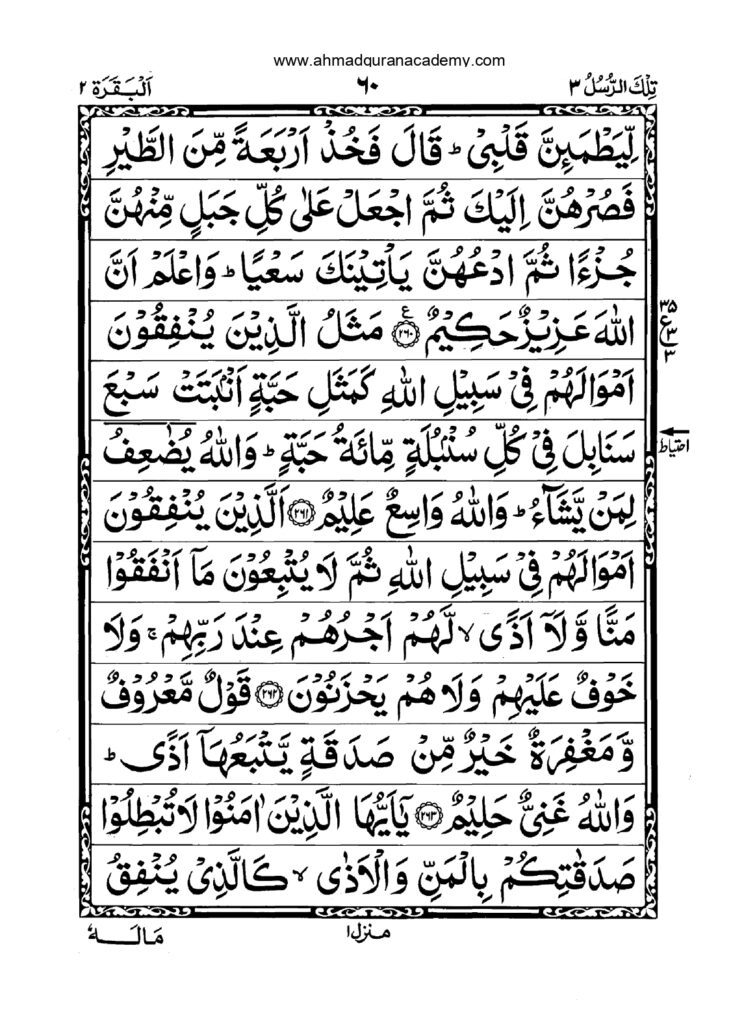 www.ahmadquranacademy.com
تِلۡكَ الرُّسُلُ ٣ ٦٠ اَلۡبَقَرَة ٢
لِّيَطۡمَئِنَّ قَلۡبِىۡ ؕ قَالَ فَخُذۡ اَرۡبَعَةً مِّنَ الطَّيۡرِ
فَصُرۡهُنَّ اِلَيۡكَ ثُمَّ اجۡعَلۡ عَلٰى كُلِّ جَبَلٍ مِّنۡهُنَّ
جُزۡءًا ثُمَّ ادۡعُهُنَّ يَاۡتِيۡنَكَ سَعۡيًا ؕ وَاعۡلَمۡ اَنَّ
اللّٰهَ عَزِيۡزٌ حَكِيۡمٌ ﴿٢٦٠﴾ ع مَثَلُ الَّذِيۡنَ يُنۡفِقُوۡنَ
٣٥ ع ٣ ٣
اَمۡوَالَهُمۡ فِىۡ سَبِيۡلِ اللّٰهِ كَمَثَلِ حَبَّةٍ اَنۡۢبَتَتۡ سَبۡعَ
سَنَابِلَ فِىۡ كُلِّ سُنۡۢبُلَةٍ مِّائَةُ حَبَّةٍ ؕ وَاللّٰهُ يُضٰعِفُ
احتیاط
لِمَنۡ يَّشَآءُ ؕ وَاللّٰهُ وَاسِعٌ عَلِيۡمٌ ﴿٢٦١﴾ اَلَّذِيۡنَ يُنۡفِقُوۡنَ
اَمۡوَالَهُمۡ فِىۡ سَبِيۡلِ اللّٰهِ ثُمَّ لَا يُتۡبِعُوۡنَ مَآ اَنۡفَقُوۡا
مَنًّا وَّلَاۤ اَذًى ۙ لَّهُمۡ اَجۡرُهُمۡ عِنۡدَ رَبِّهِمۡ ۚ وَلَا
خَوۡفٌ عَلَيۡهِمۡ وَلَا هُمۡ يَحۡزَنُوۡنَ ﴿٢٦٢﴾ قَوۡلٌ مَّعۡرُوۡفٌ
وَّمَغۡفِرَةٌ خَيۡرٌ مِّنۡ صَدَقَةٍ يَّتۡبَعُهَاۤ اَذًى ؕ
وَاللّٰهُ غَنِىٌّ حَلِيۡمٌ ﴿٢٦٣﴾ يٰۤاَيُّهَا الَّذِيۡنَ اٰمَنُوۡا لَا تُبۡطِلُوۡا
صَدَقٰتِكُمۡ بِالۡمَنِّ وَالۡاَذٰى ۙ كَالَّذِىۡ يُنۡفِقُ
منزل ١ مَالَهٗ